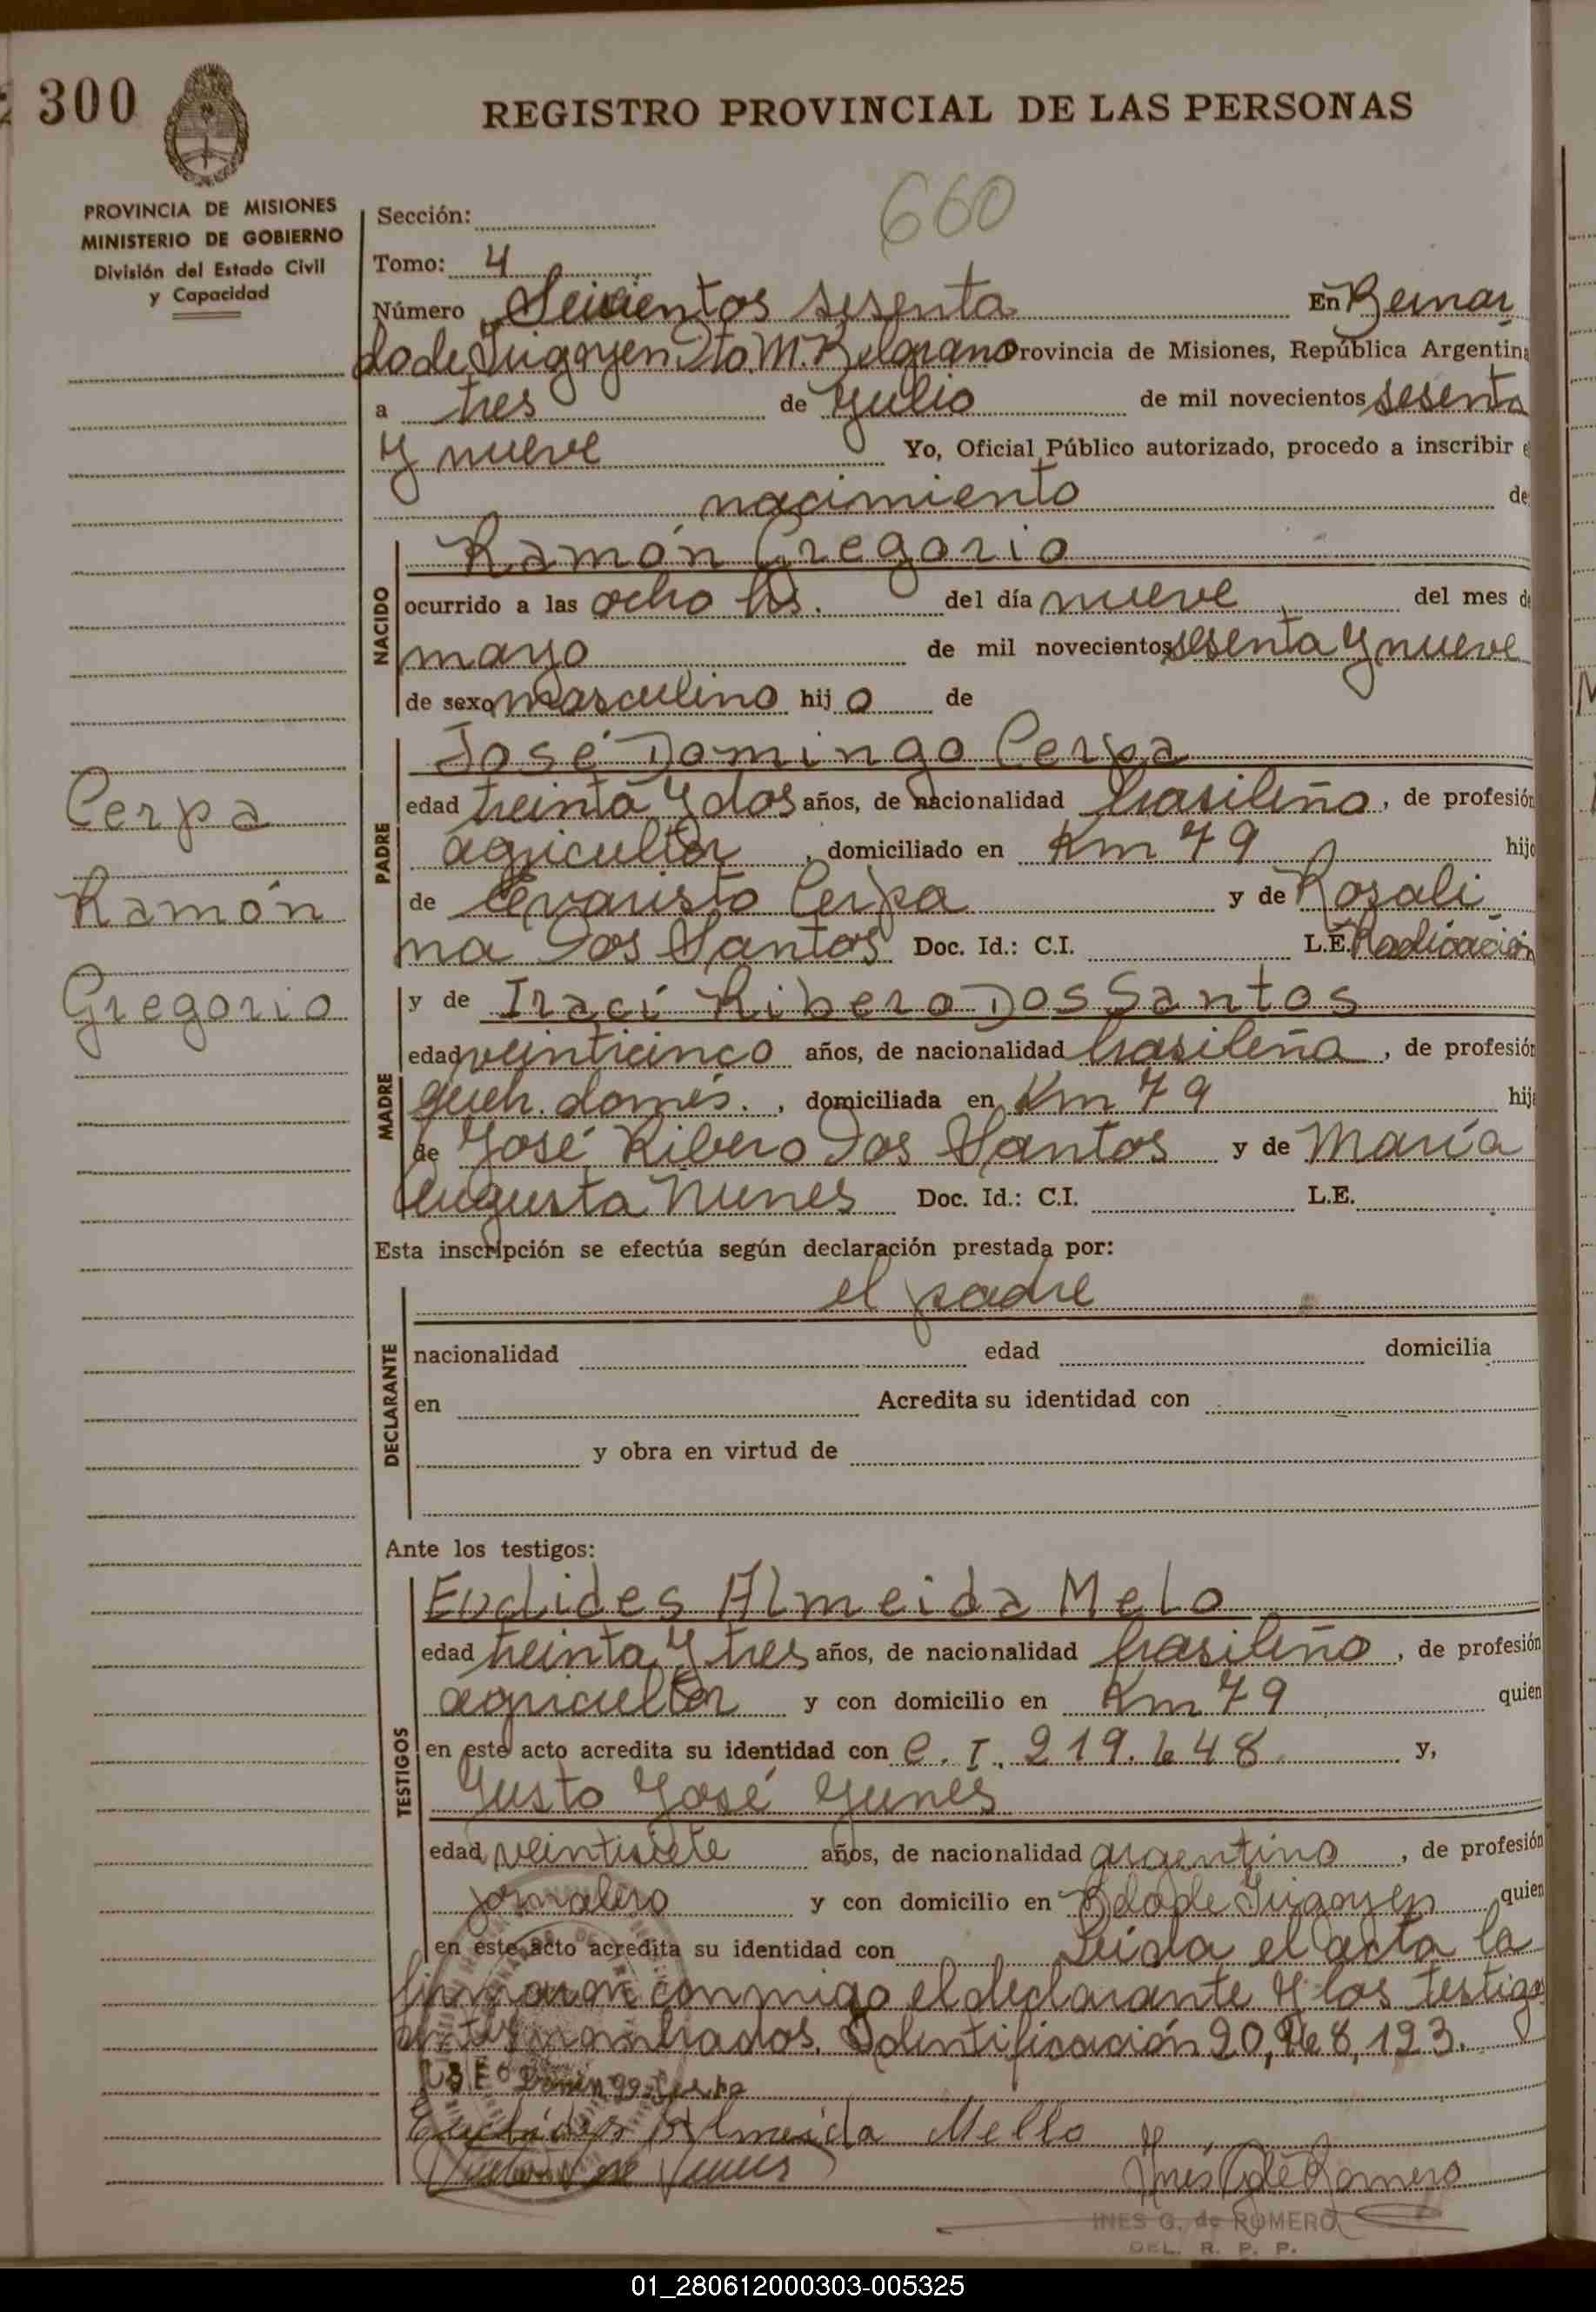 300
REGISTRO PROVINCIAL DE LAS PERSONAS
PROVINCIA DE MISIONES
MINISTERIO DE GOBIERNO
División del Estado Civil
y Capacidad
660
Sección:
Tomo: 4
Número Seicientos sesenta En Bernar
do de Irigoyen Dto. M. Belgrano Provincia de Misiones, República Argentina
a tres de Julio de mil novecientos sesenta
y nueve Yo, Oficial Público autorizado, procedo a inscribir e
nacimiento de
NACIDO
Ramón Gregorio
ocurrido a las ocho hs. del día nueve del mes de
mayo de mil novecientos sesenta y nueve
de sexo masculino hijo de
PADRE
José Domingo Cerpa
edad treinta y dos años, de nacionalidad brasileño, de profesión
agricultor, domiciliado en Km 79 hijo
de Evaristo Cerpa y de Rosali
na Dos Santos Doc. Id.: C.I. L.E. Radicación
Cerpa
Ramón
Gregorio
MADRE
y de Iraci Ribero Dos Santos
edad veinticinco años, de nacionalidad brasileña, de profesión
queh. domés., domiciliada en Km 79 hija
de José Ribero Dos Santos y de María
Augusta Nunes Doc. Id.: C.I. L.E.
Esta inscripción se efectúa según declaración prestada por:
DECLARANTE
el padre
nacionalidad edad domicilia
en Acredita su identidad con
y obra en virtud de
Ante los testigos:
TESTIGOS
Euclides Almeida Melo
edad treinta y tres años, de nacionalidad brasileño, de profesión
agricultor y con domicilio en Km 79 quien
en este acto acredita su identidad con C. I. 219.648 y,
Justo José Yunes
edad veintisiete años, de nacionalidad argentino, de profesión
jornalero y con domicilio en Bdo de Irigoyen quien
en este acto acredita su identidad con Leída el acta la
firmaron conmigo el declarante y los testigos
antes nombrados. Identificación 20,968,193.
José Domingo Cerpa
Euclides Almeida Mello
Inés G de Romero
INES G. de ROMERO
DEL. R. P. P.
01_280612000303-005325